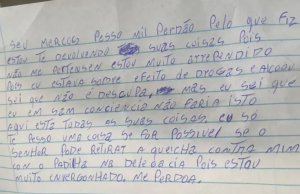 Seu Mercos Pesso mil Perdão Pelo que Fiz
estou Te devolvendo suas coisas Pois
não me Pertensen estou muito arrependido
Pois eu estava sobre efeito de drogas e alcool
sei que não é desculpa mas eu sei que
eu em sam conciencia não faria isto
Aqui esta todas as suas coisas eu só
Te Pesso uma coisa se for possivel se o
senhor Pode retirar a queicha contra mim
com o Padilha na delegácia Pois estou
muito envergonhado, me Perdoa.